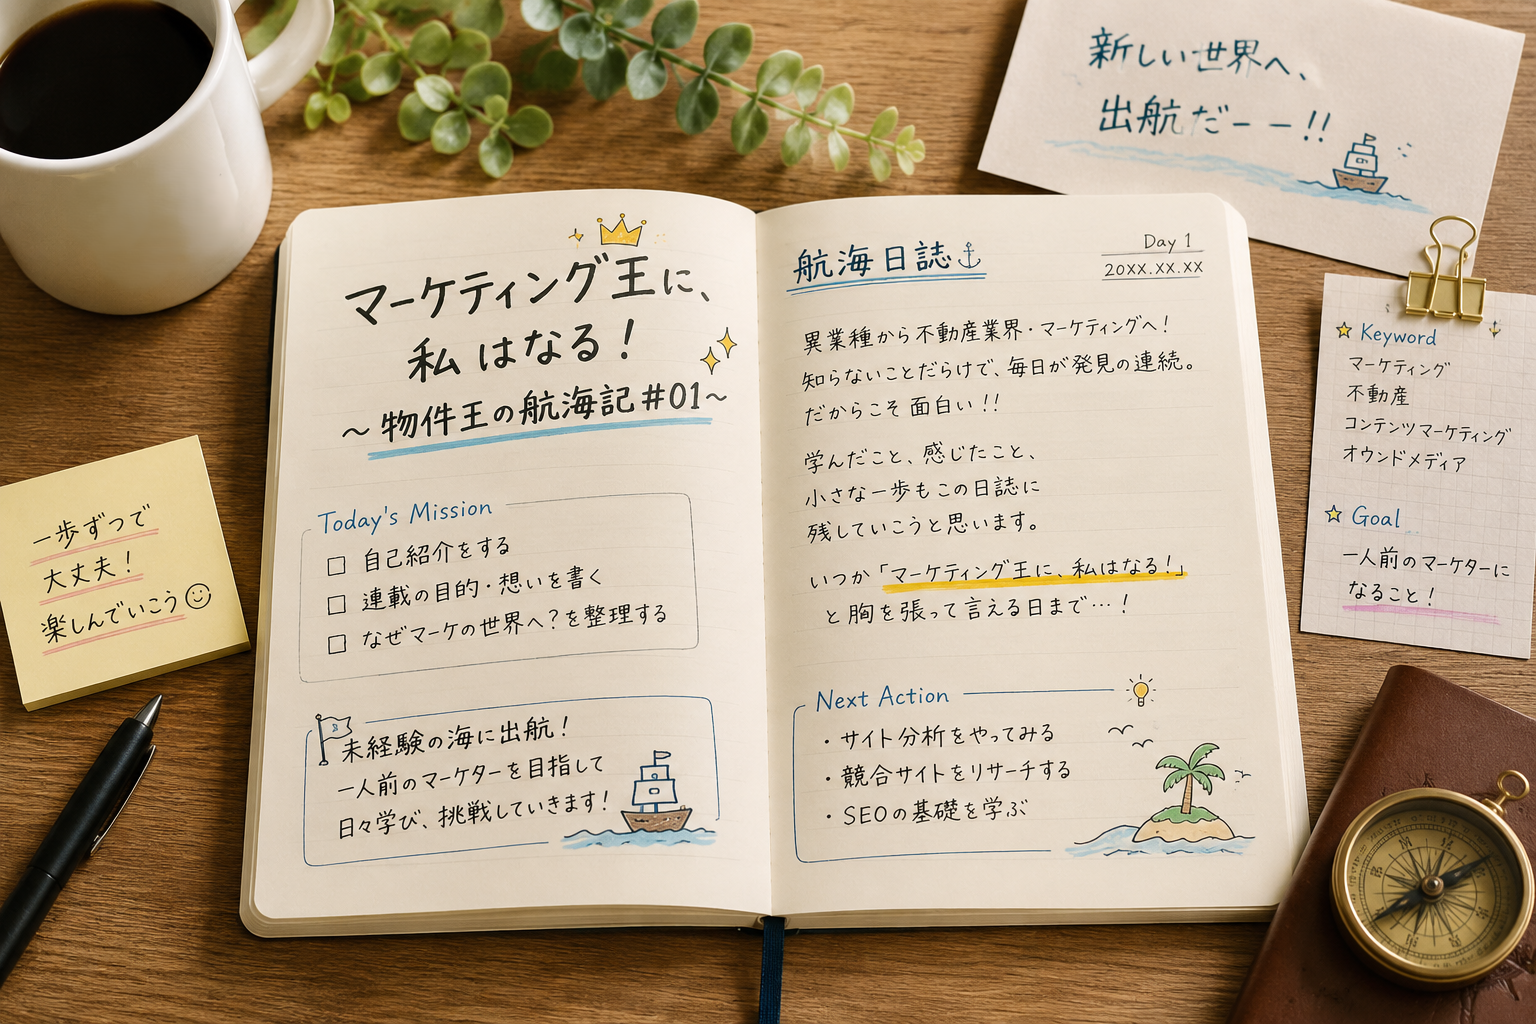 新しい世界へ、
出航だーー!!
マーケティング王に、
私はなる！
～物件王の航海記 #01～
Today's Mission
□ 自己紹介をする
□ 連載の目的・想いを書く
□ なぜマーケの世界へ？を整理する
未経験の海に出航！
一人前のマーケターを目指して
日々学び、挑戦していきます！
航海日誌
Day 1
20XX.XX.XX
異業種から不動産業界・マーケティングへ！
知らないことだらけで、毎日が発見の連続。
だからこそ 面白い！！
学んだこと、感じたこと、
小さな一歩もこの日誌に
残していこうと思います。
いつか「マーケティング王に、私はなる！」
と胸を張って言える日まで…！
Next Action
・サイト分析をやってみる
・競合サイトをリサーチする
・SEOの基礎を学ぶ
Keyword
マーケティング
不動産
コンテンツマーケティング
オウンドメディア
Goal
一人前のマーケターに
なること！
一歩ずつで
大丈夫！
楽しんでいこう